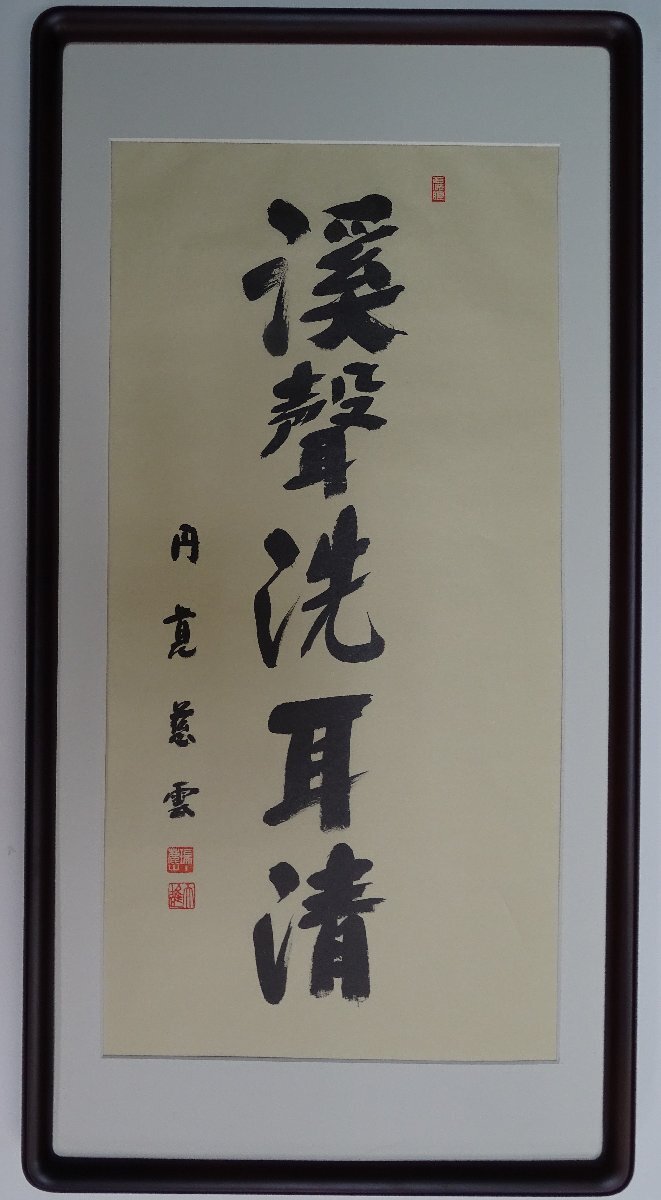 溪聲洗耳清
円真慈雲